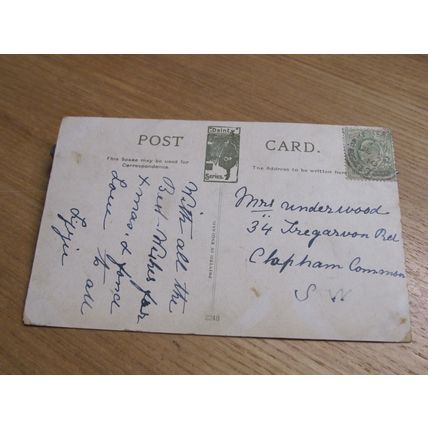 POST CARD.
"Dainty"
Series.
This Space may be used for
Correspondence.
The Address to be written here
With all the
Best Wishes for
xmas & fond
Love to all
Lizzie
Mrs Underwood
34 Tregarvon Rd
Clapham Common
S W
2248